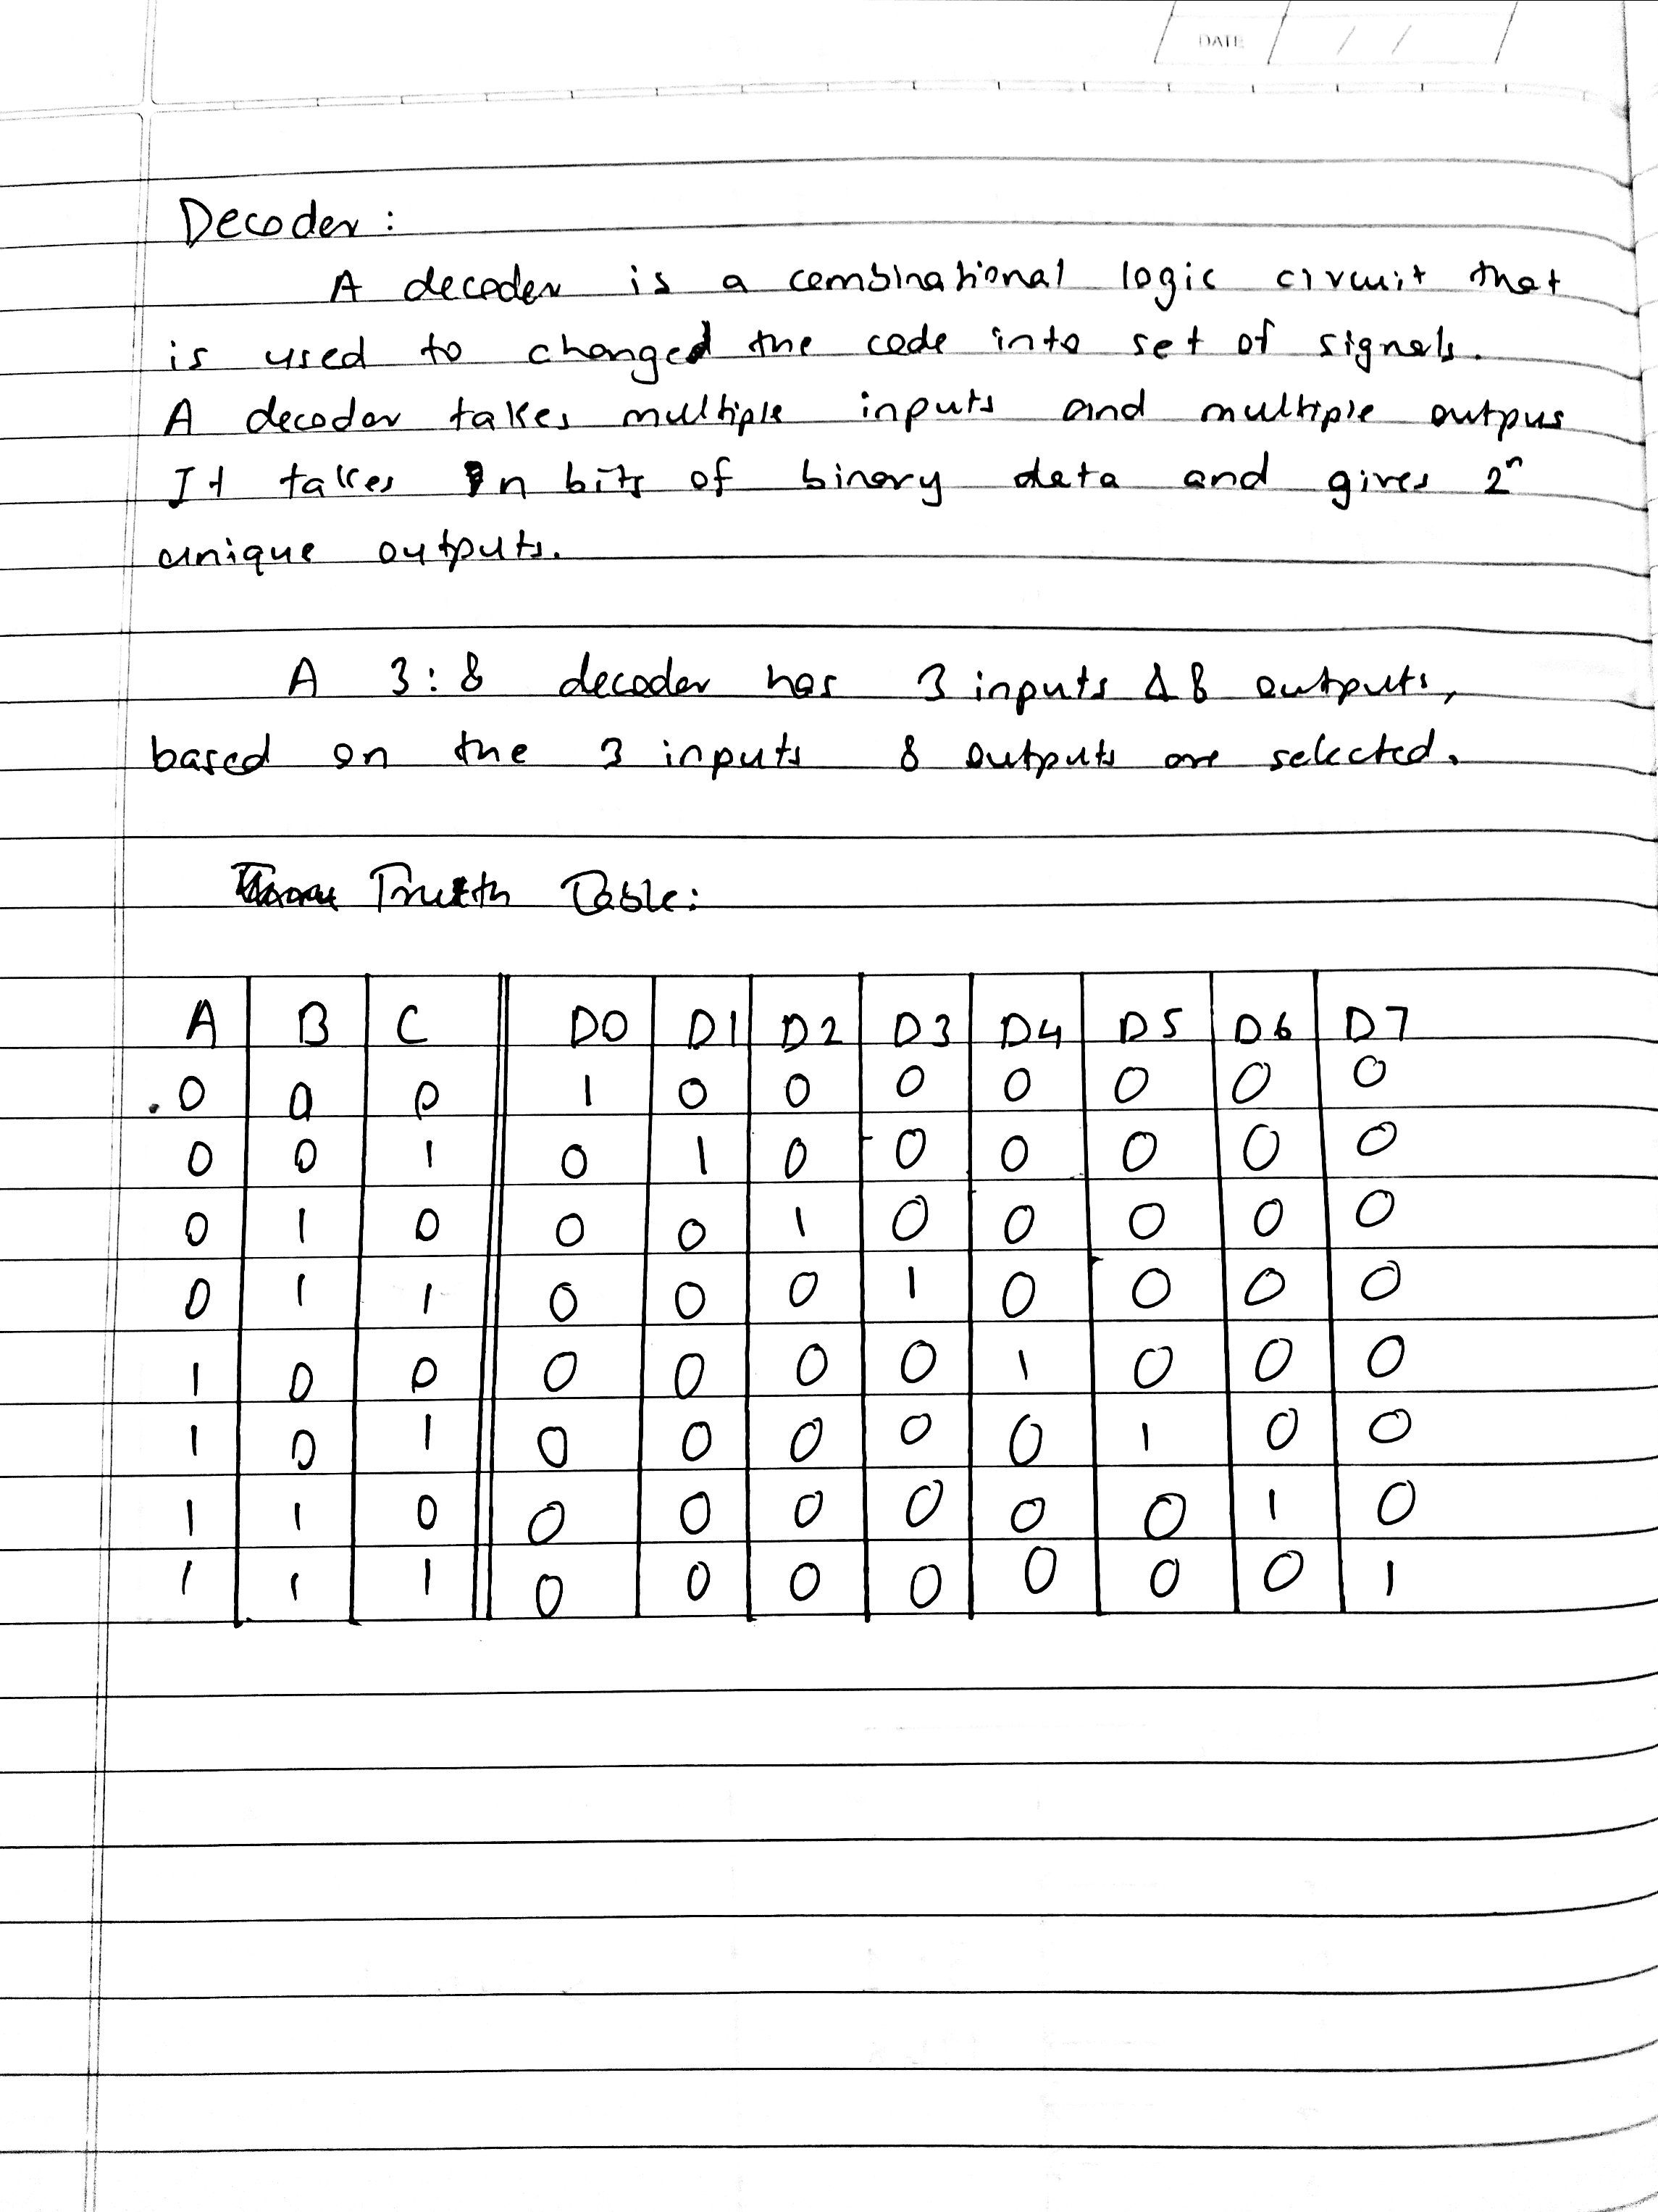 DATE / /
Decoder:
A decoder is a combinational logic circuit that
is used to changed the code into set of signals.
A decoder takes multiple inputs and multiple outpus
It takes n bits of binary data and gives 2ⁿ
unique outputs.
A 3:8 decoder has 3 inputs & 8 outputs,
based on the 3 inputs 8 outputs are selected.
Truth Table:
A B C D0 D1 D2 D3 D4 D5 D6 D7
0 0 0 1 0 0 0 0 0 0 0
0 0 1 0 1 0 0 0 0 0 0
0 1 0 0 0 1 0 0 0 0 0
0 1 1 0 0 0 1 0 0 0 0
1 0 0 0 0 0 0 1 0 0 0
1 0 1 0 0 0 0 0 1 0 0
1 1 0 0 0 0 0 0 0 1 0
1 1 1 0 0 0 0 0 0 0 1